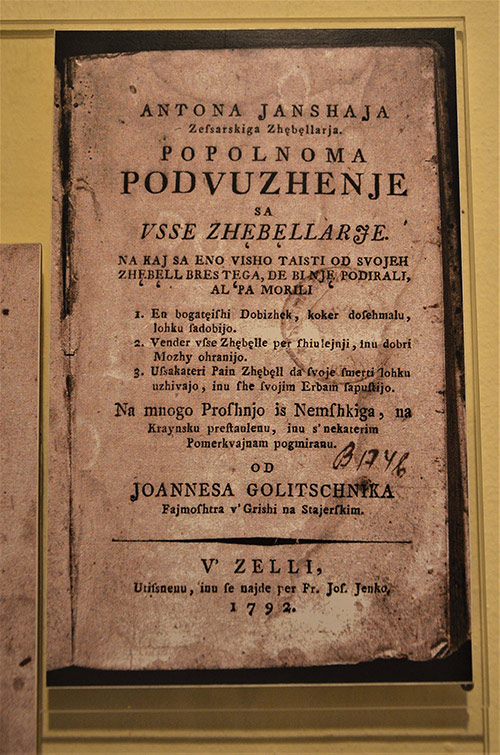 ANTONA JANSHAJA
Zeſsarskiga Zhębęllarja.
POPOLNOMA
PODVUZHENJE
SA
VSSE ZHĘBELLARJE.
NA KAJ SA ENO VISHO TAISTI OD SVOJEH
ZHĘBĘLL BRES TEGA, DE BI NJĘ PODIRALI,
AL' PA MORILI
1. En bogatęiſhi Dobizhek, koker doſehmalu,
lohku ſadobijo.
2. Vender vſse Zhębęlle per ſhiulejnji, inu dobri
Mozhy ohranijo.
3. Uſsakateri Pain Zhębęll da ſvoje ſmerti lohku
uzhivajo, inu ſhe ſvojim Erbam ſapuſtijo.
Na mnogo Proſhnjo is Nemſhkiga, na
Kraynsku preſtavlenu, inu s' nekaterim
Pomerkvajnam pogmiranu.
B 1746
OD
JOANNESA GOLITSCHNIKA
Fajmoſhtra v' Grishi na Stajerſkim.
V' ZELLI,
Utiſsnenu, inu ſe najde per Fr. Joſ. Jenko,
1792.